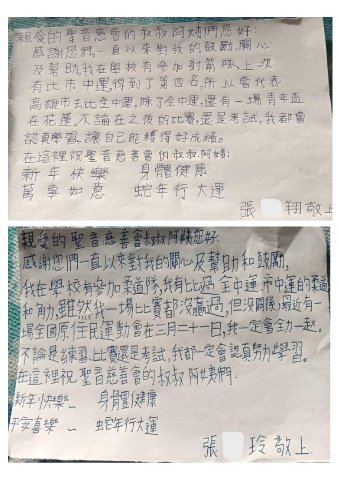 親愛的聖音慈會的叔叔阿姨們您好:
感謝您們一直以來對我的鼓勵、關心
及幫助,我在學校有參加射箭隊,上次
有比市中運,得到了第四名,所以當代表
高雄市去比全中運,除了全中運,還有一場青年盃
在花蓮,不論在之後的比賽,還是考試,我都會
認真學習,讓自己能獲得好成績。
在這裡祝聖音慈善會的叔叔阿姨:
新年快樂 身體健康
萬事如意 蛇年行大運
張 翔敬上
親愛的聖音慈善會叔叔阿姨您好:
感謝您們一直以來對我的關心及幫助和鼓勵,
我在學校有參加柔道隊,我有比過全中運市中運的柔道
和角力,雖然我一場比賽都沒贏過,但沒關係,最近有一
場全國原住民運動會在三月二十一日,我一定會主力一起。
不論是練習、比賽還是考試,我都一定會認真努力學習。
在這裡祝聖音慈善會的叔叔阿姨們
新年快樂~ 身體健康
平安喜樂~ 蛇年行大運
張 玲敬上